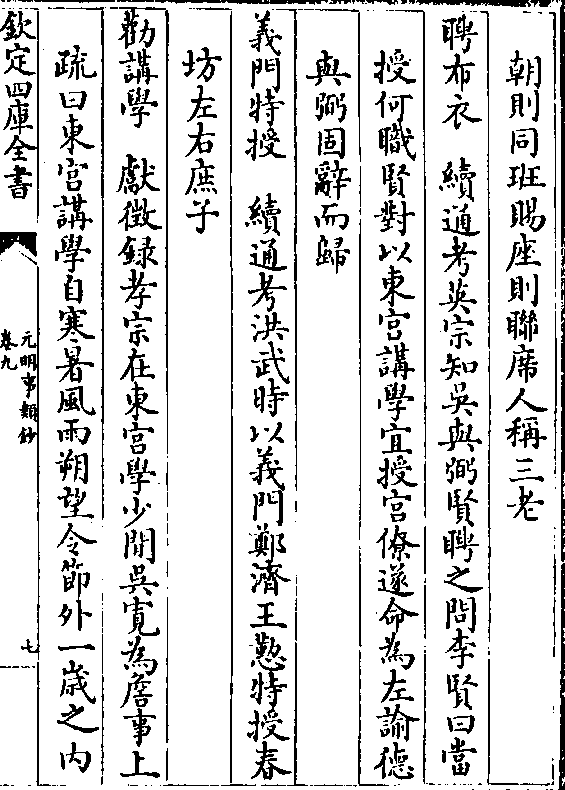 朝則同班賜座則聯席人稱三老
聘布衣　續通考英宗知吳與弼賢聘之問李賢曰當
授何職賢對以東宫講學宜授宫僚遂命為左諭德
與弼固辭而歸
義門特授　續通考洪武時以義門鄭濟王懃特授春
坊左右庶子
勸講學　獻徵録孝宗在東宫學少間吳寛為詹事上
疏曰東宫講學自寒暑風雨朔望令節外一歳之内
欽定四庫全書
元明事類鈔
卷九
七